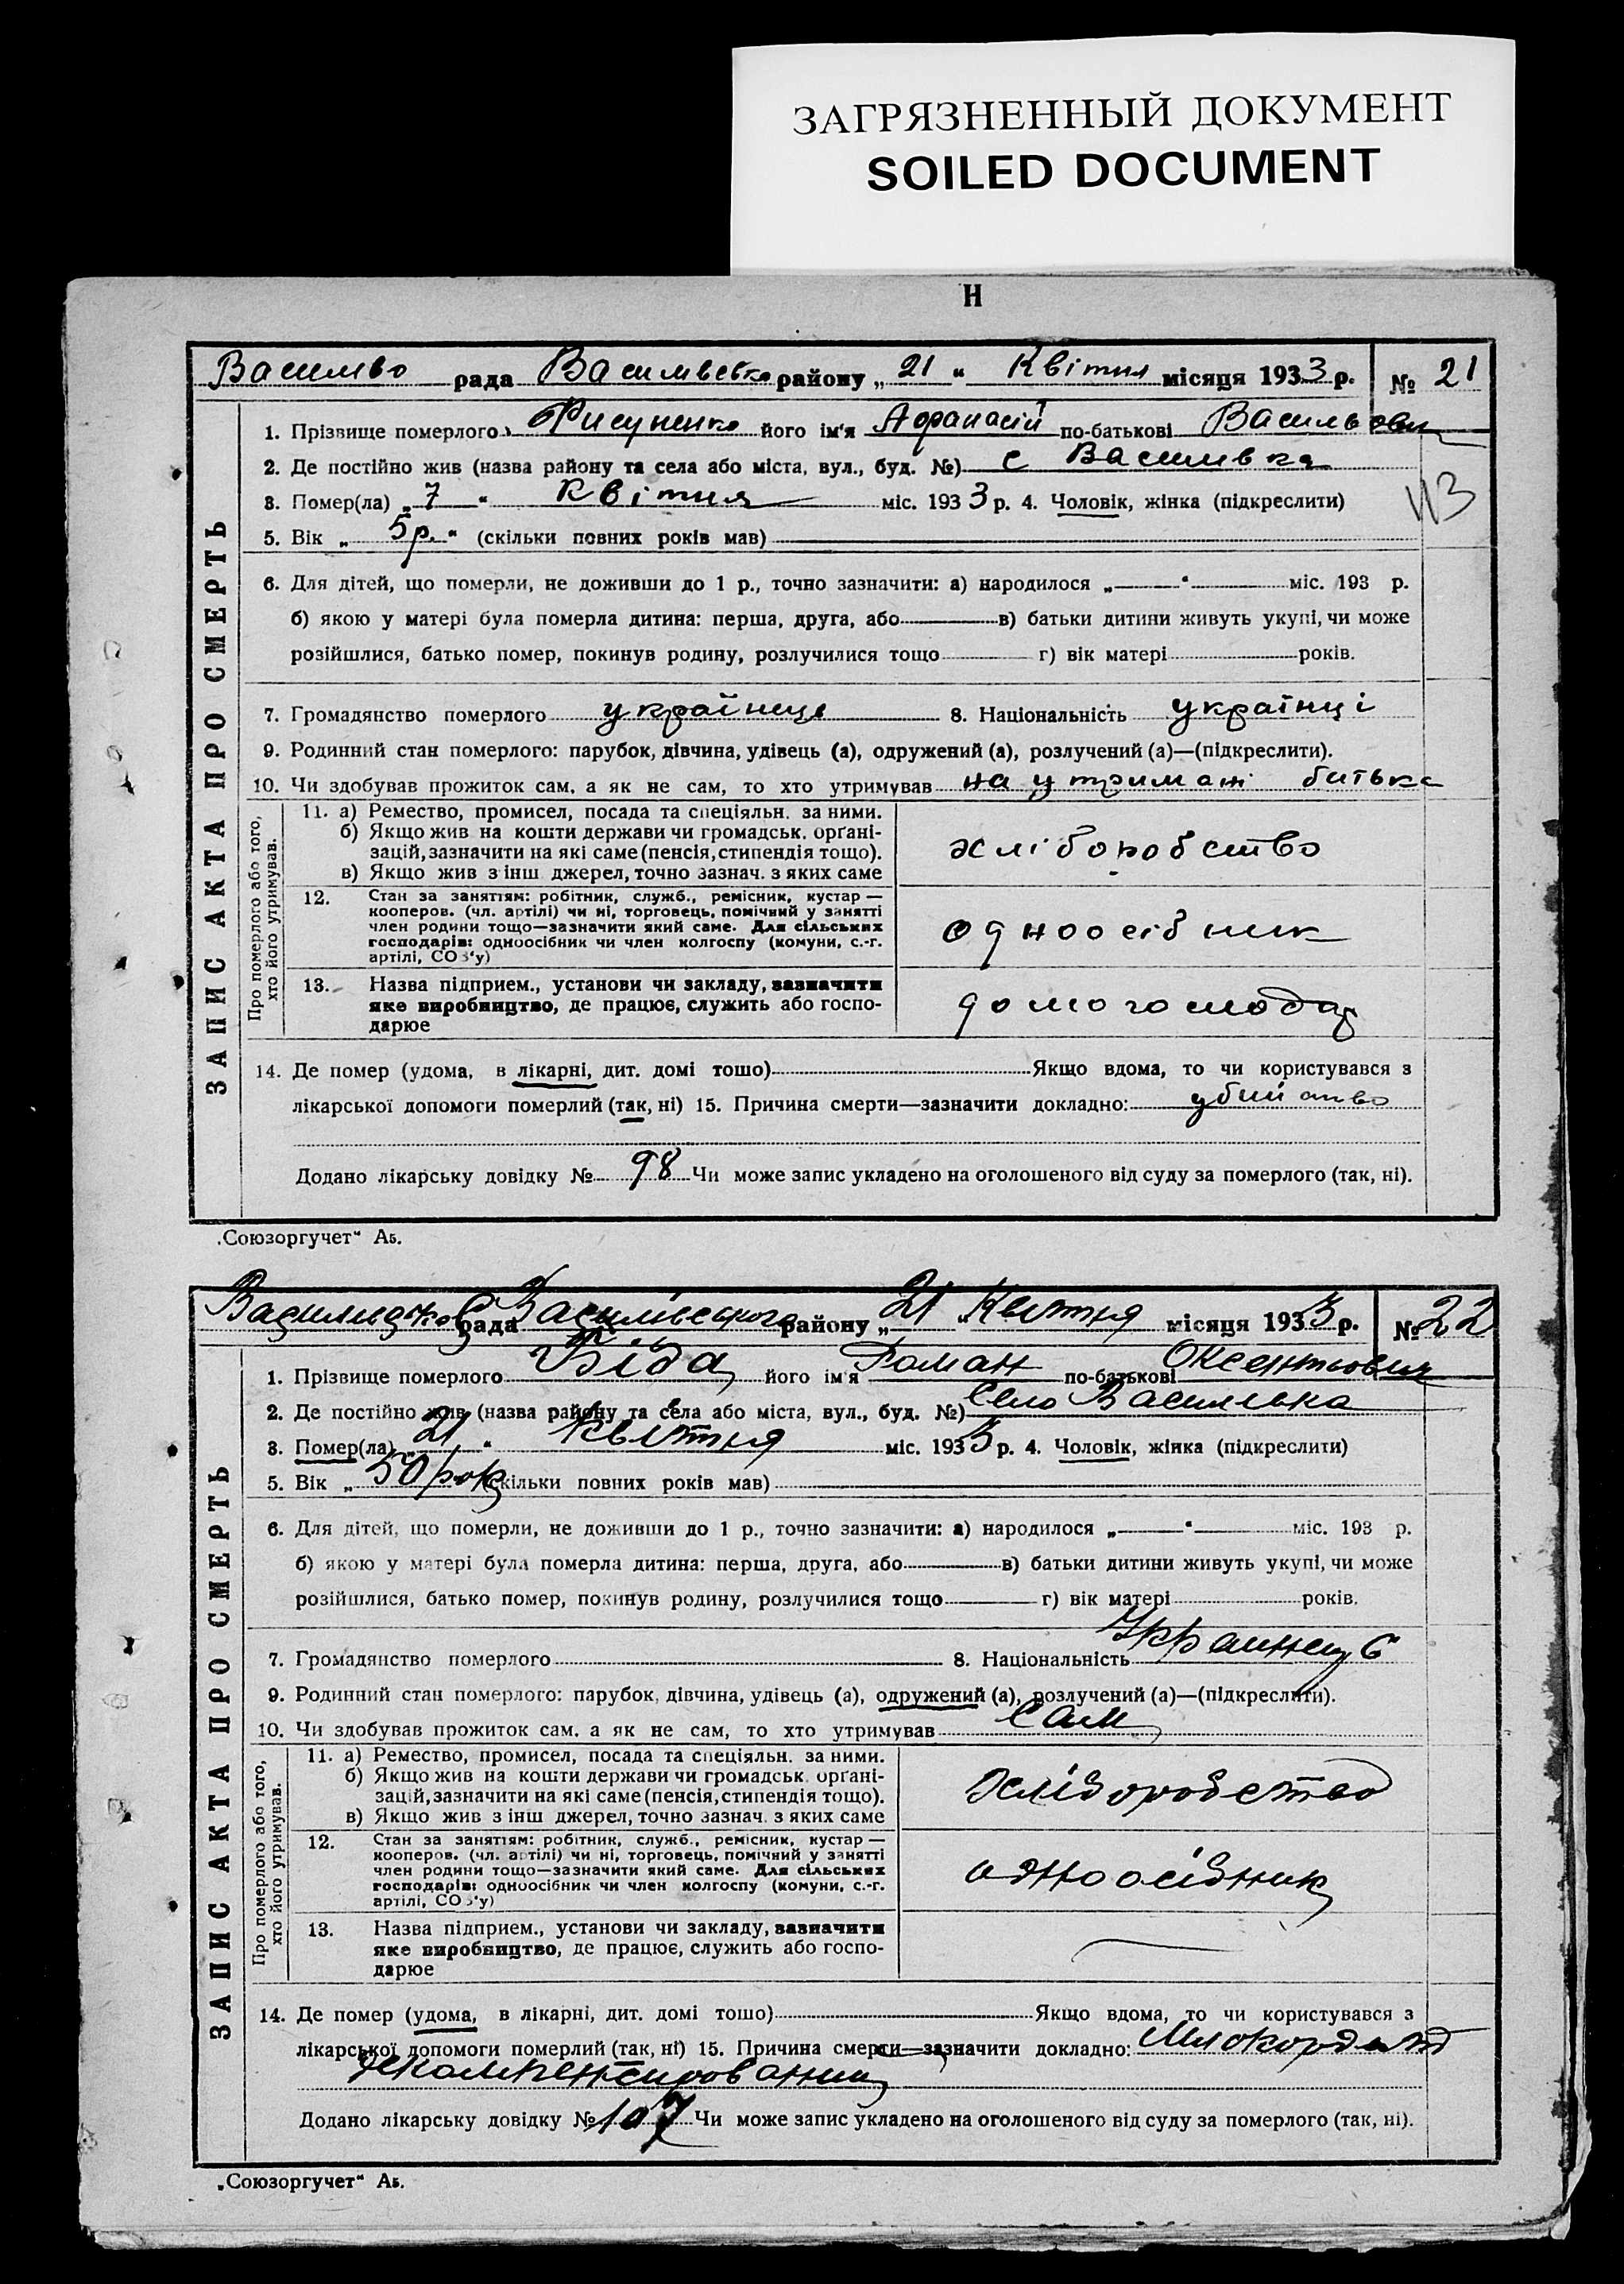 ЗАГРЯЗНЕННЫЙ ДОКУМЕНТ
SOILED DOCUMENT
Н
рада района „ 21 “ Квітня місяця 1933 р. № 21
ЗАПИС АКТА ПРО СМЕРТЬ
1. Прізвище померлого його ім'я Афанасій по-батькові Васильович
2. Де постійно жив (назва району та села або міста, вул., буд. №) с Василівка
113
3. Помер(ла) „ 7 “ Квітня міс. 1933 р. 4. Чоловік, жінка (підкреслити)
5. Вік „ 5 р. “ (скільки повних років мав)
6. Для дітей, що померли, не доживши до 1 р., точно зазначити: а) народилося „ “ міс. 193 р.
б) якою у матері була померла дитина: перша, друга, або в) батьки дитини живуть укупі, чи може
розійшлися, батько помер, покинув родину, розлучилися тощо г) вік матері років.
7. Громадянство померлого 8. Національність українці
9. Родинний стан померлого: парубок, дівчина, удівець (а), одружений (а), розлучений (а)—(підкреслити).
10. Чи здобував прожиток сам, а як не сам, то хто утримував на утримані батька
Про померлого або того, хто його утримував.
11. а) Ремество, промисел, посада та спеціяльн. за ними.
б) Якщо жив на кошти держави чи громадськ. орґані-
зацій, зазначити на які саме (пенсія, стипендія тощо).
в) Якщо жив з інш джерел, точно зазнач. з яких саме
хліборобство
12. Стан за заняттям: робітник, служб., ремісник, кустар —
кооперов. (чл. артілі) чи ні, торговець, помічний у занятті
член родини тощо—зазначити який саме. Для сільських
господарів: одноосібник чи член колгоспу (комуни, с.-г.
артілі, СОЗ'у)
одноосібник
13. Назва підприєм., установи чи закладу, зазначити
яке виробництво, де працює, служить або госпо-
дарює
14. Де помер (удома, в лікарні, дит. домі тощо) Якщо вдома, то чи користувався з
лікарської допомоги померлий (так, ні) 15. Причина смерти—зазначити докладно: убийство
Додано лікарську довідку № 98 Чи може запис укладено на оголошеного від суду за померлого (так, ні).
„Союзоргучет“ Аб.
рада Василівського району „ 21 “ Квітня місяця 1933 р. № 22
ЗАПИС АКТА ПРО СМЕРТЬ
1. Прізвище померлого Біда його ім'я Роман по-батькові Оксентьович
2. Де постійно жив (назва району та села або міста, вул., буд. №) село Василівка
3. Помер(ла) „ 21 “ Квітня міс. 1933 р. 4. Чоловік, жінка (підкреслити)
5. Вік „ 50 рок (скільки повних років мав)
6. Для дітей, що померли, не доживши до 1 р., точно зазначити: а) народилося „ “ міс. 193 р.
б) якою у матері була померла дитина: перша, друга, або в) батьки дитини живуть укупі, чи може
розійшлися, батько помер, покинув родину, розлучилися тощо г) вік матері років.
7. Громадянство померлого 8. Національність
9. Родинний стан померлого: парубок, дівчина, удівець (а), одружений (а), розлучений (а)—(підкреслити).
10. Чи здобував прожиток сам, а як не сам, то хто утримував Сам
Про померлого або того, хто його утримував.
11. а) Ремество, промисел, посада та спеціяльн. за ними.
б) Якщо жив на кошти держави чи громадськ. орґані-
зацій, зазначити на які саме (пенсія, стипендія тощо).
в) Якщо жив з інш джерел, точно зазнач. з яких саме
хліборобство
12. Стан за заняттям: робітник, служб., ремісник, кустар —
кооперов. (чл. артілі) чи ні, торговець, помічний у занятті
член родини тощо—зазначити який саме. Для сільських
господарів: одноосібник чи член колгоспу (комуни, с.-г.
артілі, СОЗ'у)
одноосібник
13. Назва підприєм., установи чи закладу, зазначити
яке виробництво, де працює, служить або госпо-
дарює
14. Де помер (удома, в лікарні, дит. домі тощо) Якщо вдома, то чи користувався з
лікарської допомоги померлий (так, ні) 15. Причина смерти—зазначити докладно: Миокордит
Додано лікарську довідку № 107 Чи може запис укладено на оголошеного від суду за померлого (так, ні).
„Союзоргучет“ Аб.